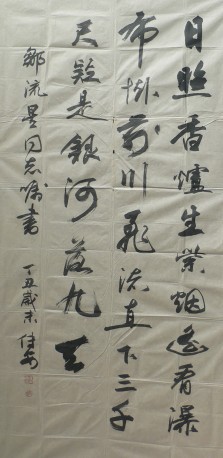 日照香爐生紫烟遙看瀑
布掛前川飛流直下三千
尺疑是銀河落九天
鄒流昱同志嘱書
丁丑歲末